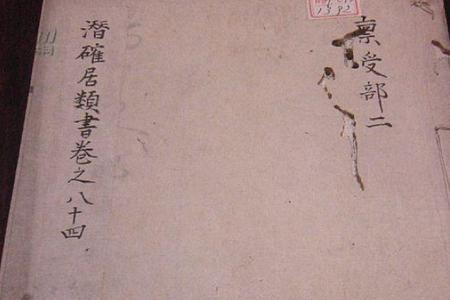 稟受部二
潛確居類書卷之八十四